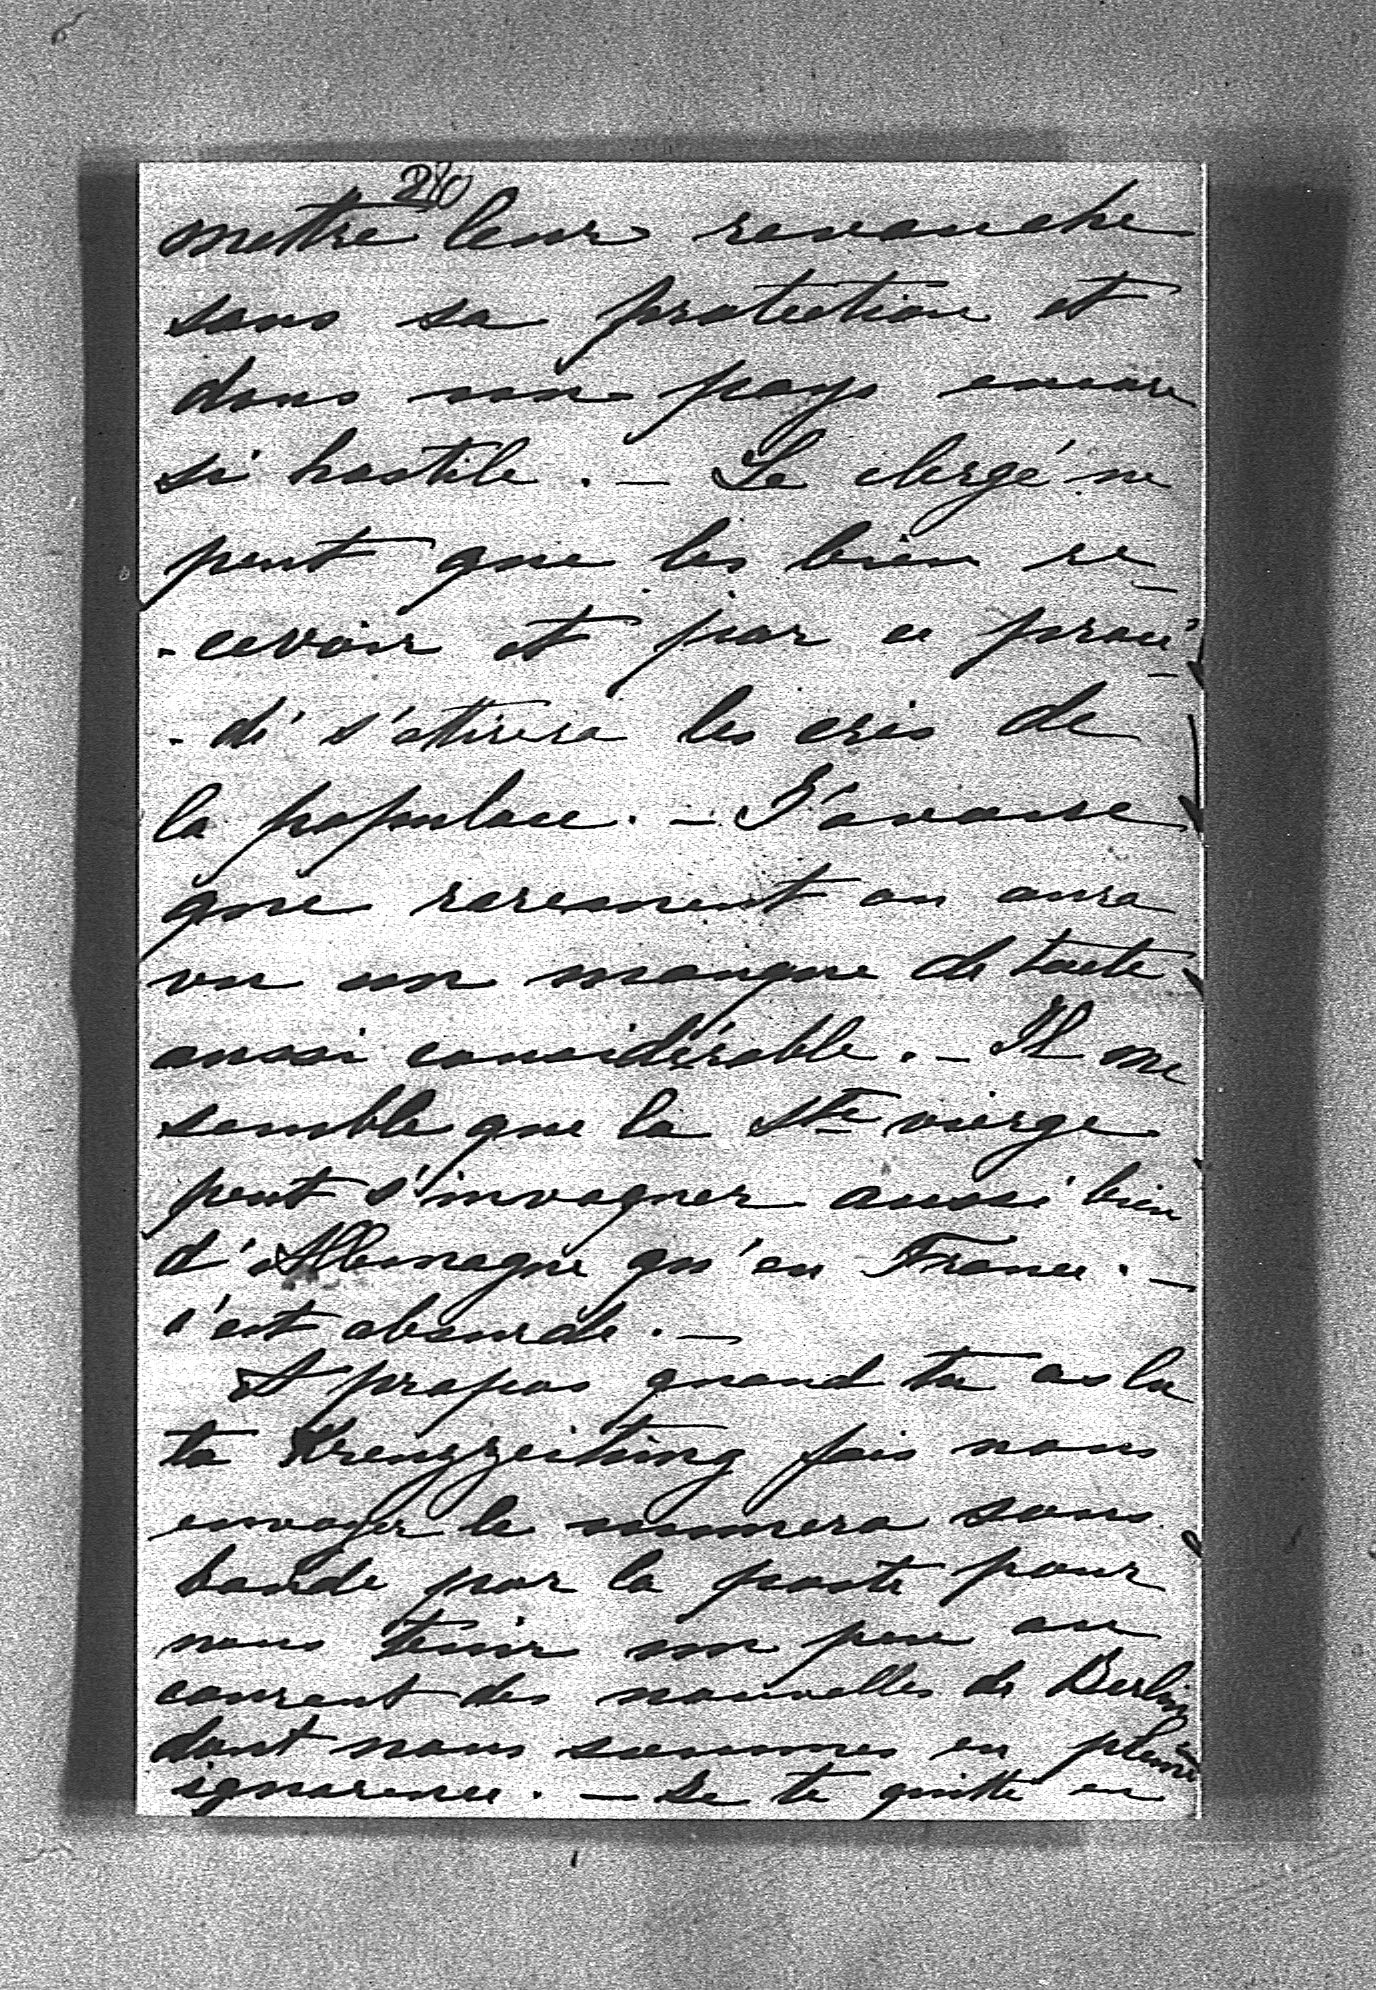 280
mettre leur revanche
sans sa protection et
dans un pays encore
si hostile. — Le clergé ne
peut que les bien re-
-cevoir et par ce procé-
-dé s'attirera les cris de
la populace. — J'avoue
que rarement on aura
vu un manque de tacte
aussi considérable. — Il me
semble que la Ste vierge
peut s'invoquer aussi bien
d'Allemagne qu'en France. —
c'est absurde. —
A propos quand tu as lu
ta Kreuzzeitung fais nous
envoyer le numero sous
bande par la poste pour
nous tenir un peu au
courent des nouvelles de Berlin
dont nous sommes en pleine
ignorence. — Je te quitte en